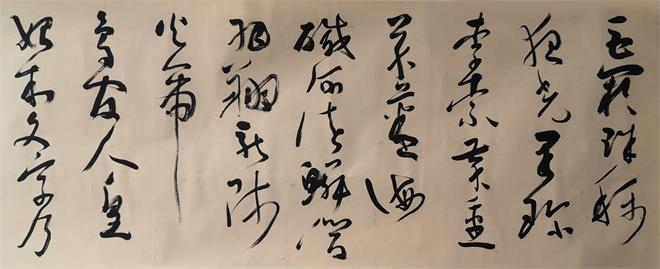 巨闕珠稱
夜光果珍
李柰菜重
芥薑海
鹹河淡鱗潛
羽翔龍師
火帝
鳥官人皇
始制文字乃